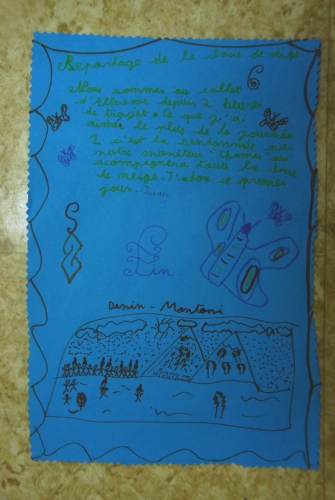 Reportage de la classe de neige
Nous sommes au collet
d'Allevard depuis 2 heures
de trajet. Ce que j'ai
aimé le plus de la journée
1 c'est la randonnée avec
notre moniteur Thomas qui
acompagnera toute la classe
de neige. J'adore ce premier
jour.
Fin
Dessin - Montoni